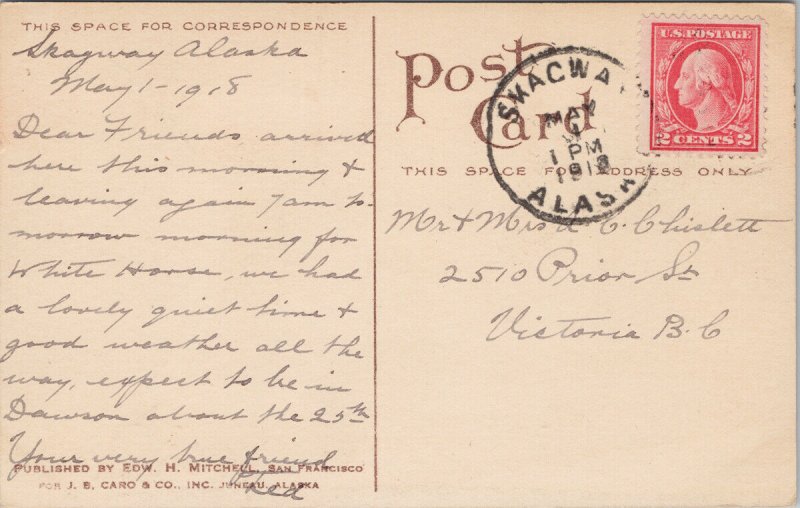 THIS SPACE FOR CORRESPONDENCE
Skagway Alaska
May 1 - 1918
Dear Friends arrived
here this morning &
leaving again 7 am to-
morrow morning for
White Horse, we had
a lovely quiet time &
good weather all the
way, expect to be in
Dawson about the 25th
Your very true friend
PUBLISHED BY EDW. H. MITCHELL, SAN FRANCISCO
FOR J. B. CARO & CO., INC. JUNEAU, ALASKA
Post
Card
THIS SPACE FOR ADDRESS ONLY
SKAGWA
MAY
1
1 PM
1918
ALASK
U.S. POSTAGE
2 CENTS 2
Mr & Mrs C. Chislett
2510 Prior St
Victoria B.C